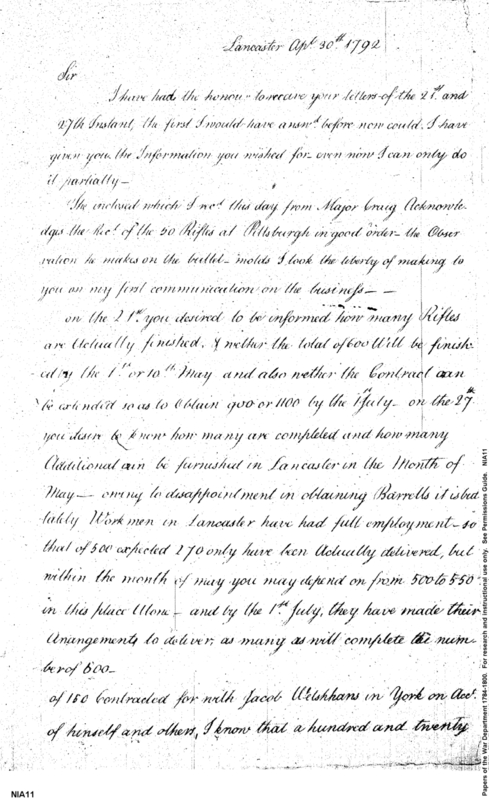 Lancaster Apl. 30th. 1792
Sir
I have had the honour to receive your letters of the 21st. and
27th Instant, the first I would have answd. before now could I have
given you the Information you wished for even now I can only do
it partially—
The enclosed which I recd. this day from Major Craig Acknowle-
dges the Rect. of the 50 Rifles at Pittsburgh in good order— the Obser
vation he makes on the bullet-molds I took the liberty of making to
you on my first communication on the business— —
on the 21st. you desired to be informed how many Rifles
are Actually finished, & wether the total of 600 Will be finish-
ed by the 1st. or 10th May and also wether the Contract can
be extended so as to Obtain 900 or 1100 by the 1st July— on the 27th.
you desire to know how many are completed and how many
Additional can be furnished in Lancaster in the Month of
May— owing to disappointment in obtaining Barrells it is but
lately Workmen in Lancaster have had full employment— so
that of 500 expected 270 only have been Actually delivered, but
within the month of may you may depend on from 500 to 550
in this place Alone— and by the 1st. July, they have made their
Arrangements to deliver, as many as will complete the num-
ber of 600—
of 150 Contracted for with Jacob Welshhans in York on Acct.
of himself and others, I know that a hundred and twenty
NIA11
Papers of the War Department 1784-1800. For research and instructional use only. See Permissions Guide. NIA11